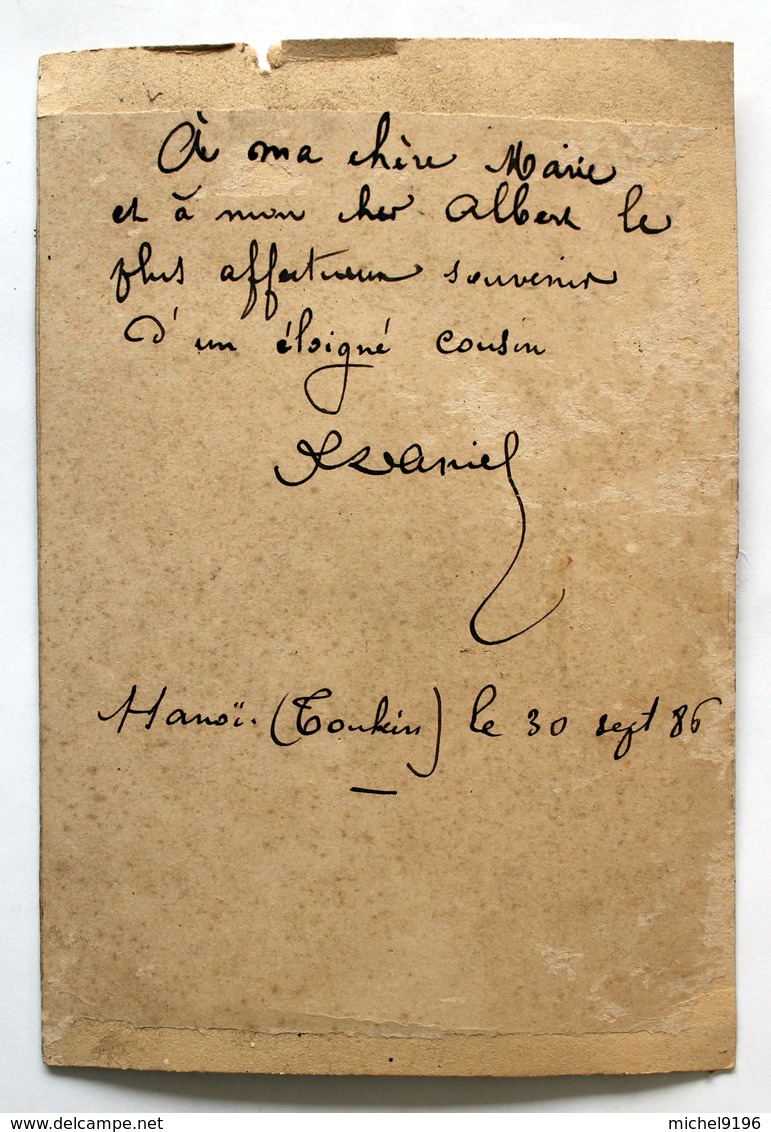 À ma chère Marie
et à mon cher Albert le
plus affectueux souvenir
d'un éloigné cousin
Hanoï. (Tonkin) le 30 sept 86
www.delcampe.net
michel9196